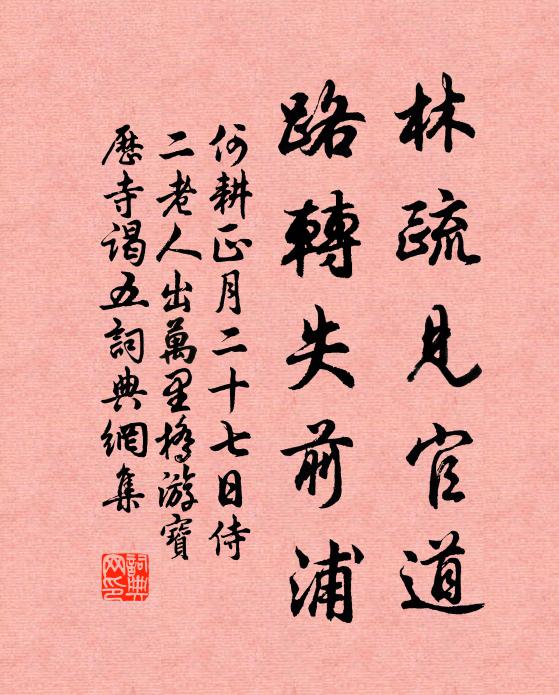 林疏見官道
路轉失前浦
何耕正月二十七日侍
二老人出萬里橋游寶
曆寺謁五詞典網集
詞典
网印